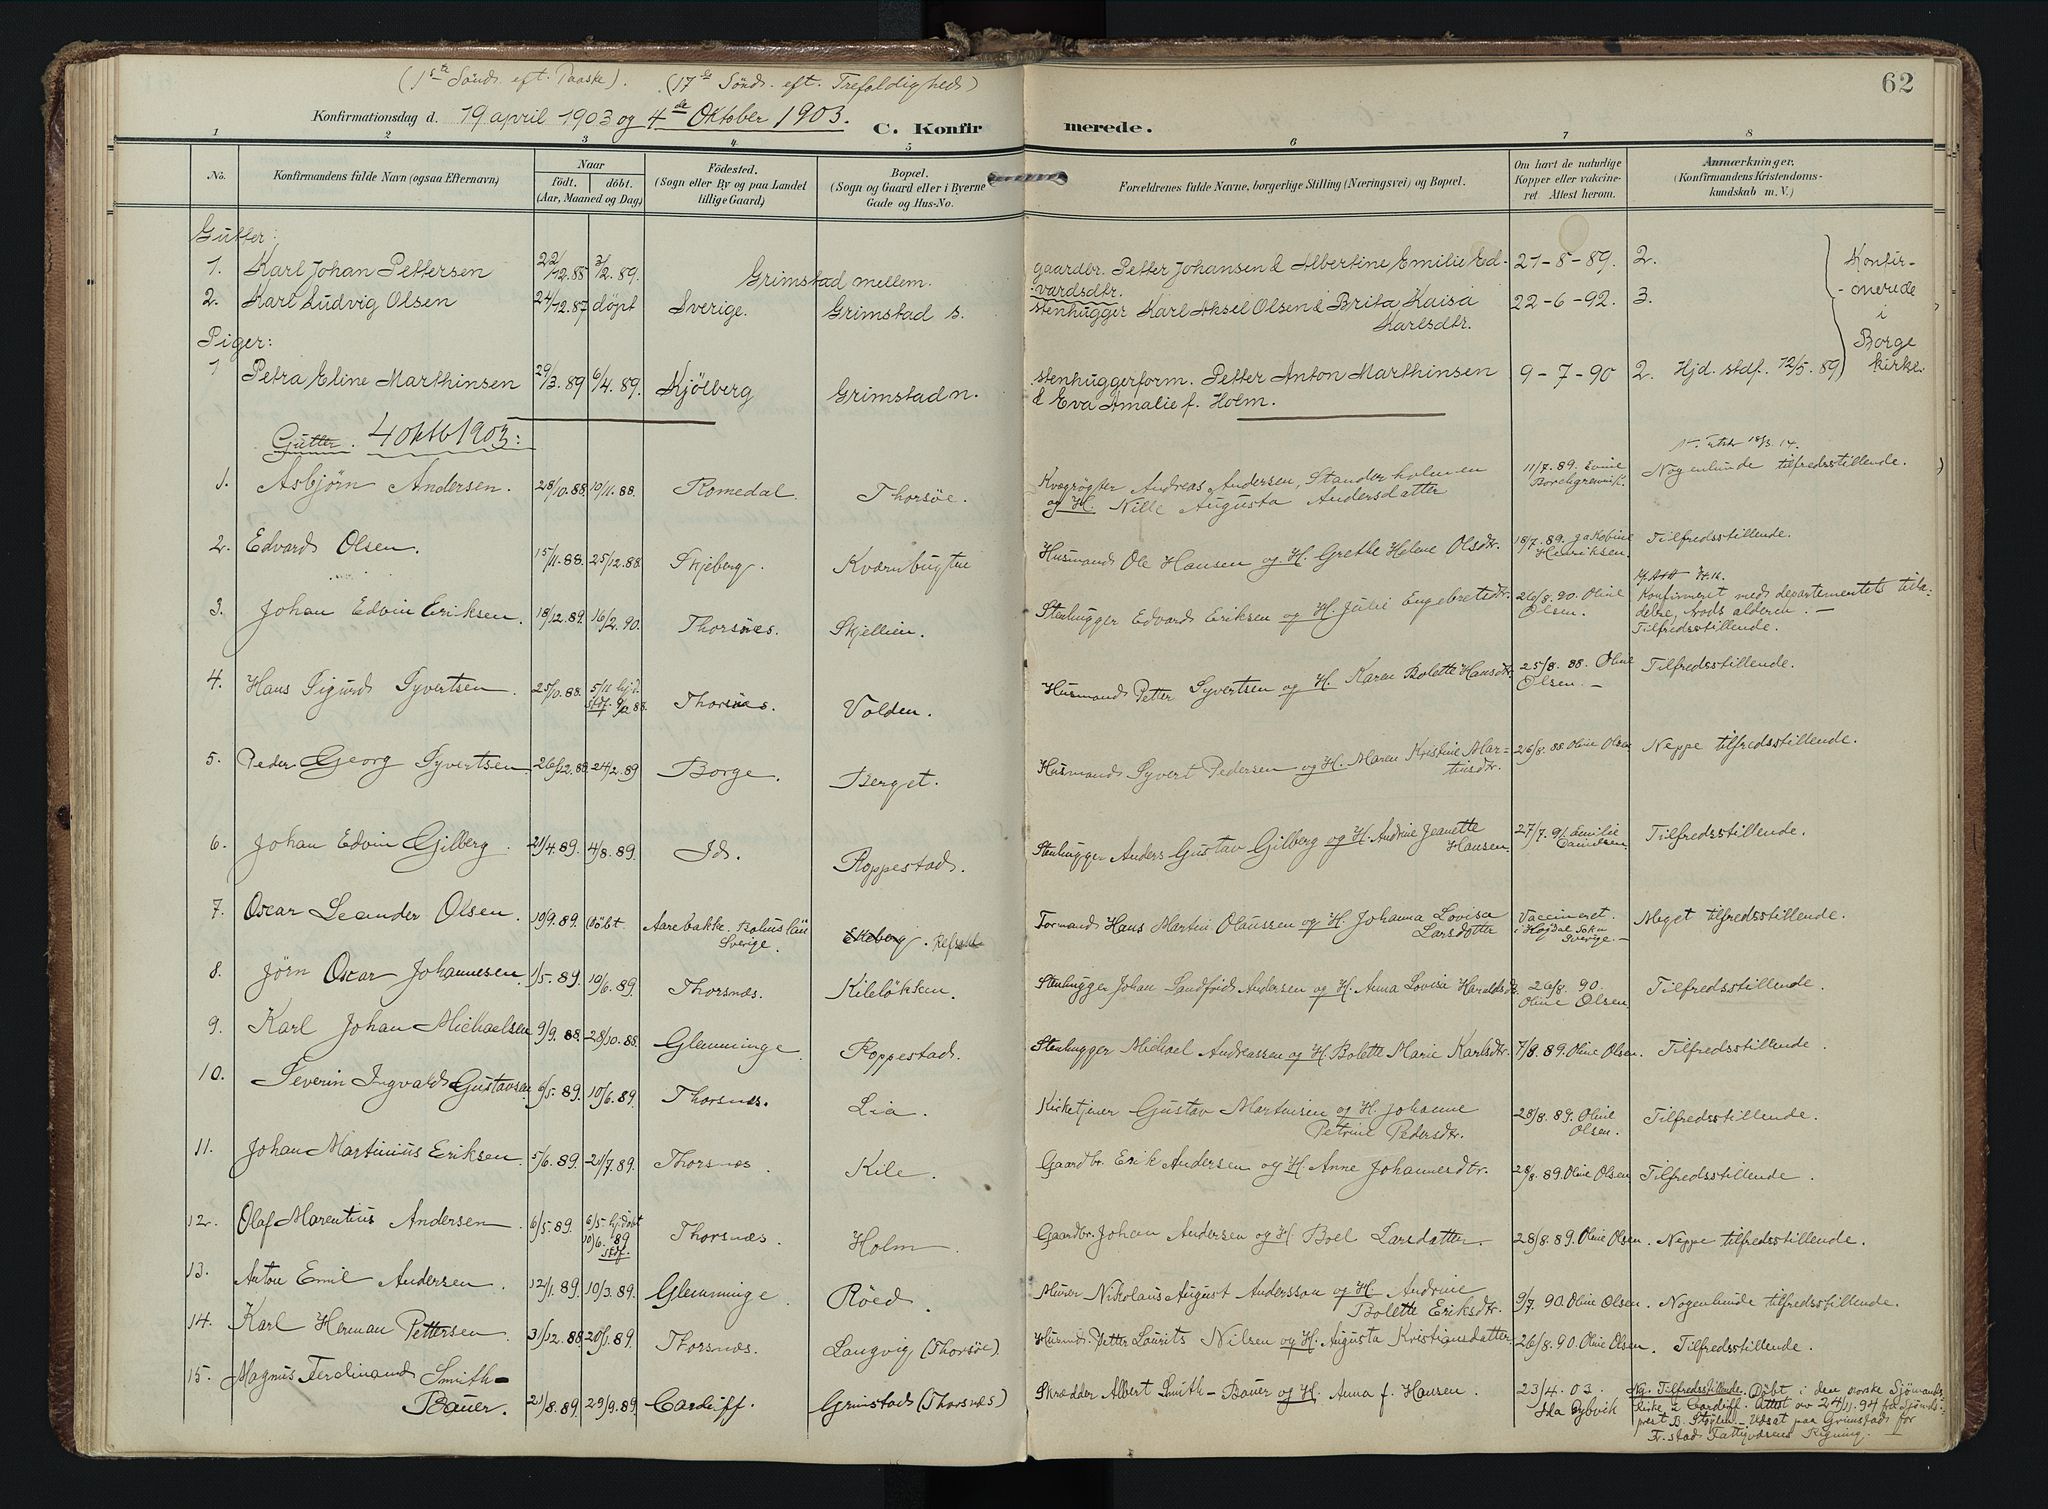 (1ste Sønd. eft. Paaske). (17de Sønd. eft. Trefoldigheds)
62
Konfirmationsdag d. 19 april 1903 og 4de Oktober 1903.
C. Konfirmerede.
1 2 3 4 5 6 7 8
No.
Konfirmandens fulde Navn (ogsaa Efternavn).
Naar
født. døbt.
(Aar, Maaned og Dag)
Fødested.
(Sogn eller By og paa Landet
tillige Gaard)
Bopæl.
(Sogn og Gaard eller i Byerne
Gade og Hus-No.
Forældrenes fulde Navne, borgerlige Stilling (Næringsvei) og Bopæl.
Om havt de naturlige
Kopper eller vakcine-
ret Attest herom.
Anmærkninger.
(Konfirmandens Kristendoms-
kundskab m. V.)
Gutter:
1. Karl Johan Pettersen 22/12.88 3/2.89. Grimstad mellem. gaardbr. Petter Johansen & Albertine Emilie Ed- 21-8-89. 2.
vardsdtr.
2. Karl Ludvig Olsen 24/12.87 døpt Sverige. Grimstad s. stenhugger Karl Aksel Olsen & Brita Kaisa 22-6-92. 3.
Karlsdtr.
Konfir-
-merede
i
Borge
kirke.
Piger:
1 Petra Eline Marthinsen 29/3.89 6/4.89. Kjölberg Grimstad n. stenhuggerform. Petter Anton Marthinsen 9-7-90 2. Hjd. stdf. 12/5.89
& Eva Amalie f. Holm.
Gutter. 4 oktb 1903:
18/3.14.
1. Asbjørn Andersen. 28/10.88 10/11.88. Romedal. Thorsøe. Kvægrøgter Andreas Andersen, Standerholmen 11/7.89. Nogenlunde tilfredsstillende.
og H. Nille Augusta Andersdatter
2. Edvard Olsen. 15/11.88. 25/12.88. Skjeberg. Kværnbugten Husmand Ole Hansen og H. Grethe Helene Olsdtr. 18/7.89. Jakobine Tilfredsstillende.
Henriksen.
3. Johan Edvin Eriksen. 18/12.89. 16/2.90. Thorsnæs. Skjellien. Stenhugger Edvard Eriksen og H. Julie Engebretsdtr. 26/8.90. Oline Konfirmeret med departementets tilla-
Olsen. delse, trods alderen. —
Tilfredsstillende.
4. Hans Sigurd Syvertsen. 25/10.88. 5/11 hjd. Thorsnæs. Volden. Husmand Petter Syvertsen og H. Karen Bolette Hansdtr. 25/8.88. Oline Tilfredsstillende.
stdf. 9/12 88. Olsen. —
5. Peder Georg Syvertsen. 26/12.88. 24/2.89 Borge. Berget. Husmand Syvert Pedersen og H. Maren Kristine Mar- 26/8.88 Oline Olsen Neppe tilfredsstillende.
tinsdtr.
6. Johan Edvin Gilberg. 21/4.89. 4/8.89. Id. Roppestad. Stenhugger Anders Gustav Gilberg og H. Andrine Jeanette 27/7.91. Emilie Tilfredsstillende.
Hansen.
7. Oscar Leander Olsen. 19/9.89. Døbt. Aarebakke. Bohuslän Ekeberg. Formand Hans Martin Olaussen og H. Johanna Lovisa Vaccineret. Meget tilfredsstillende.
Sverige. Larsdotter i Högdal Sokn
Sverige. —
8. Jørn Oscar Johannesen. 1/5.89. 10/6.89. Thorsnæs. Kileløkken. Stenhugger Johan Sandfrid Andersen og H. Anna Lovisa Haraldsdtr. 26/8.90. Tilfredsstillende.
Oline Olsen
9. Karl Johan Michaelsen 9/9.88. 28/10.88. Glemminge. Roppestad. Stenhugger Michael Andreassen og H. Bolette Marie Karlsdtr. 7/8.89. Oline Olsen. Tilfredsstillende.
10. Severin Ingvald Gustavsen 6/5.89. 10/6.89. Thorsnæs. Lia. Kirketjener Gustav Martinsen og H. Johanne 28/8.89. Oline Tilfredsstillende.
Petrine Pedersdtr. Olsen.
11. Johan Martinius Eriksen. 5/6.89. 21/7.89. Thorsnæs. Kile. Gaardbr. Erik Andersen og H. Anne Johannesdtr. 28/8.89. Oline Olsen Tilfredsstillende.
12. Olaf Marentius Andersen 6/5.89. 6/5 hjdøbt Thorsnæs. Holm. Gaardbr. Johan Andersen og H. Boel Larsdatter 28/8.89. Oline Olsen. Neppe tilfredsstillende.
10/6.89
stdf.
13. Anton Emil Andersen. 12/1.89. 10/3.89. Glemminge. Röed. Murer Nikolaus August Andersson og H. Andrine 9/7.90. Oline Olsen. Nogenlunde tilfredsstillende.
Bolette Eriksdtr.
14. Karl Herman Pettersen. 31/12.88. 20/1.89. Thorsnæs. Langvig (Thorsøe). Husmd. Petter Laurits Nilsen og H. Augusta Kristiansdatter 26/8.90. Oline Olsen. Tilfredsstillende.
15. Magnus Ferdinand Smith-
Bauer. 21/8.89. 29/9.89. Cardiff. Grimstad (Thorsnæs) Skrædder Albert Smith-Bauer og H. Anna f. Hansen. 23/4.03. Ng. Tilfredsstillende. Døbt i den norske Sjømands-
Ida Dybvik kirke i Cardiff. Attest av 24/11.94 fra Sjømds-
prest B. Udsat paa Grimstad for
Fr.stad Fattigvæsens Regning.